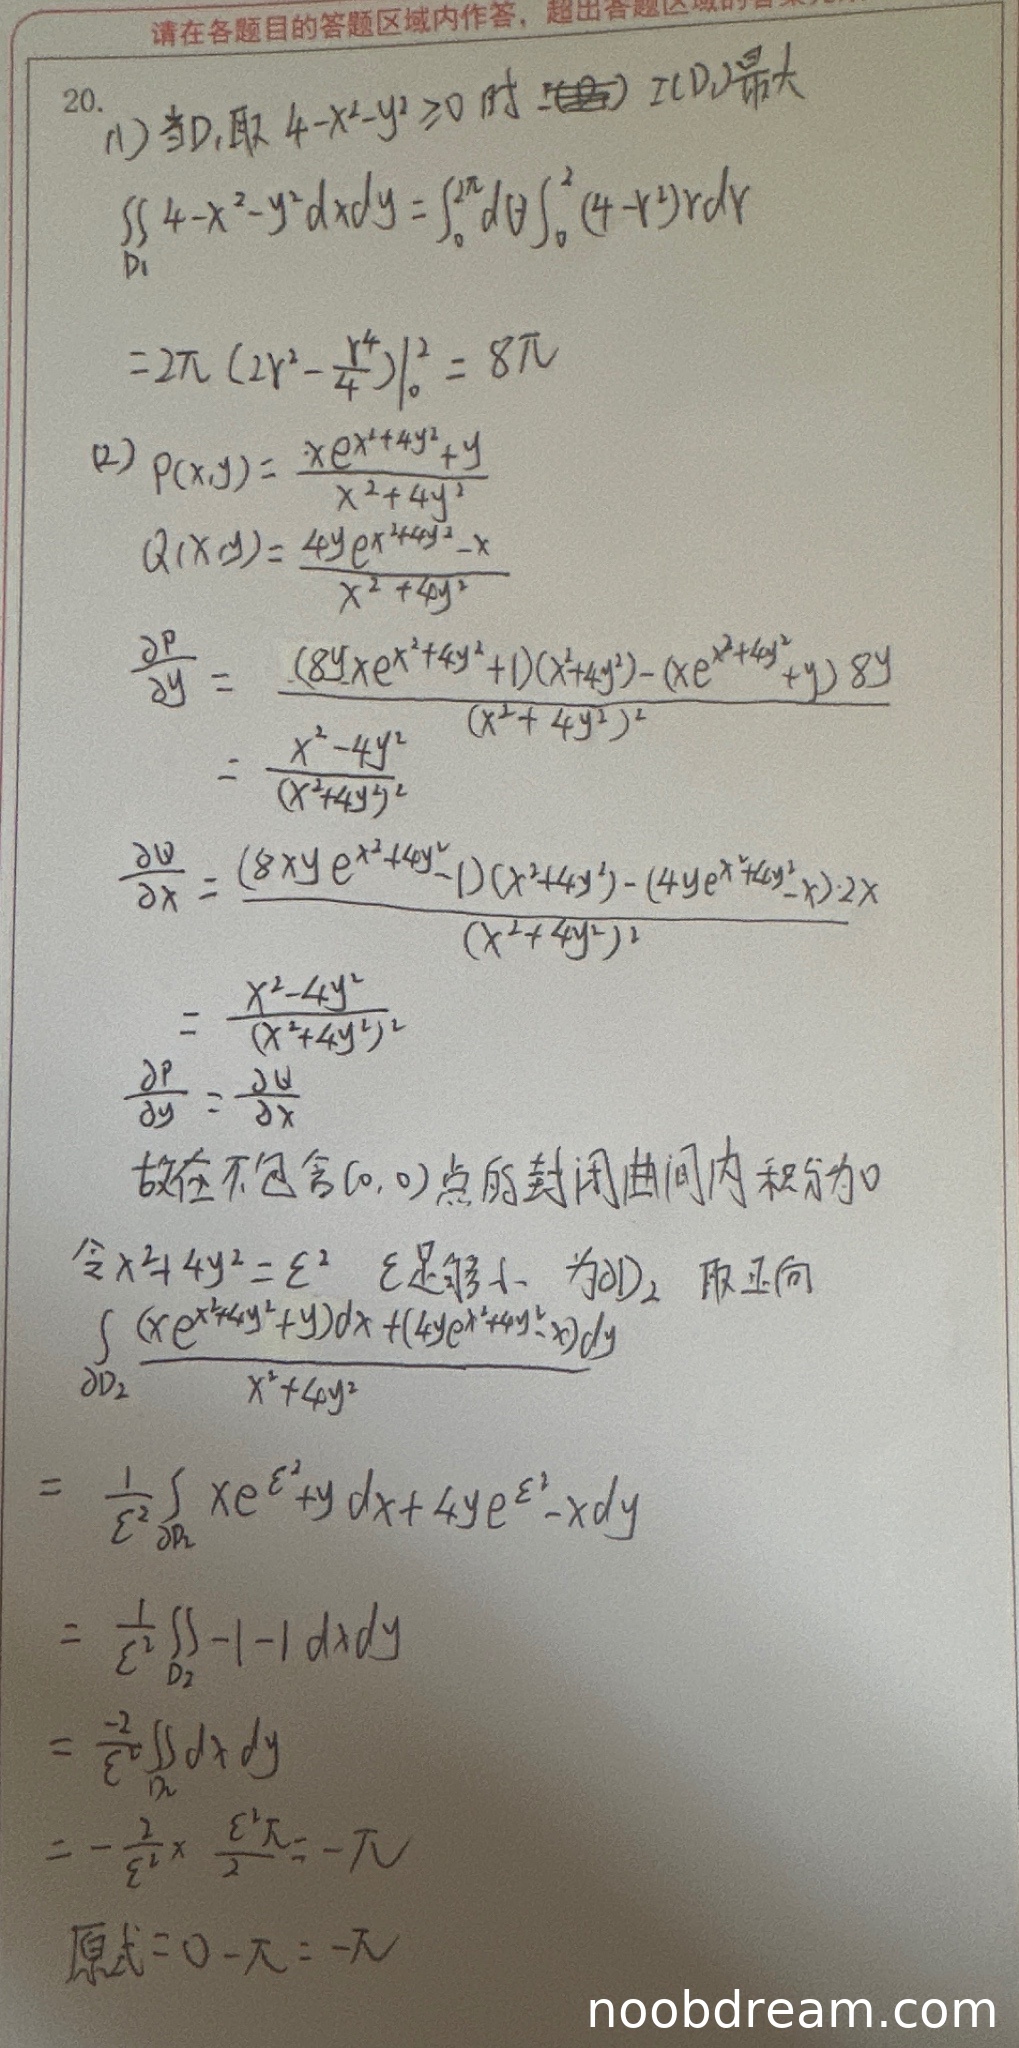 请在各题目的答题区域内作答，超出答题区域的答案无
20.
(1) 当D₁取 4-x²-y²≥0 时 I(D₁)最大
∬_{D₁} 4-x²-y²dxdy = ∫₀^{2π}dθ∫₀²(4-r²)rdr
=2π(2r²-r⁴/4)|₀² = 8π
(2) P(x,y) = (xe^{x²+4y²}+y)/(x²+4y²)
Q(x,y) = (4ye^{x²+4y²}-x)/(x²+4y²)
∂P/∂y = ((8yxe^{x²+4y²}+1)(x²+4y²)-(xe^{x²+4y²}+y)8y)/(x²+4y²)²
= (x²-4y²)/(x²+4y²)²
∂Q/∂x = ((8xye^{x²+4y²}-1)(x²+4y²)-(4ye^{x²+4y²}-x)·2x)/(x²+4y²)²
= (x²-4y²)/(x²+4y²)²
∂P/∂y = ∂Q/∂x
故在不包含(0,0)点的封闭曲间内积分为0
令x²+4y²=ε² ε足够小 为∂D₂ 取正向
∫_{∂D₂} ((xe^{x²+4y²}+y)dx+(4ye^{x²+4y²}-x)dy)/(x²+4y²)
= 1/ε² ∫_{∂D₂} xe^{ε²}+ydx+4ye^{ε²}-xdy
= 1/ε² ∬_{D₂} -1-1dxdy
= -2/ε² ∬_{D₂} dxdy
= -2/ε² × ε²π/2 = -π
原式=0-π=-π
noobdream.com